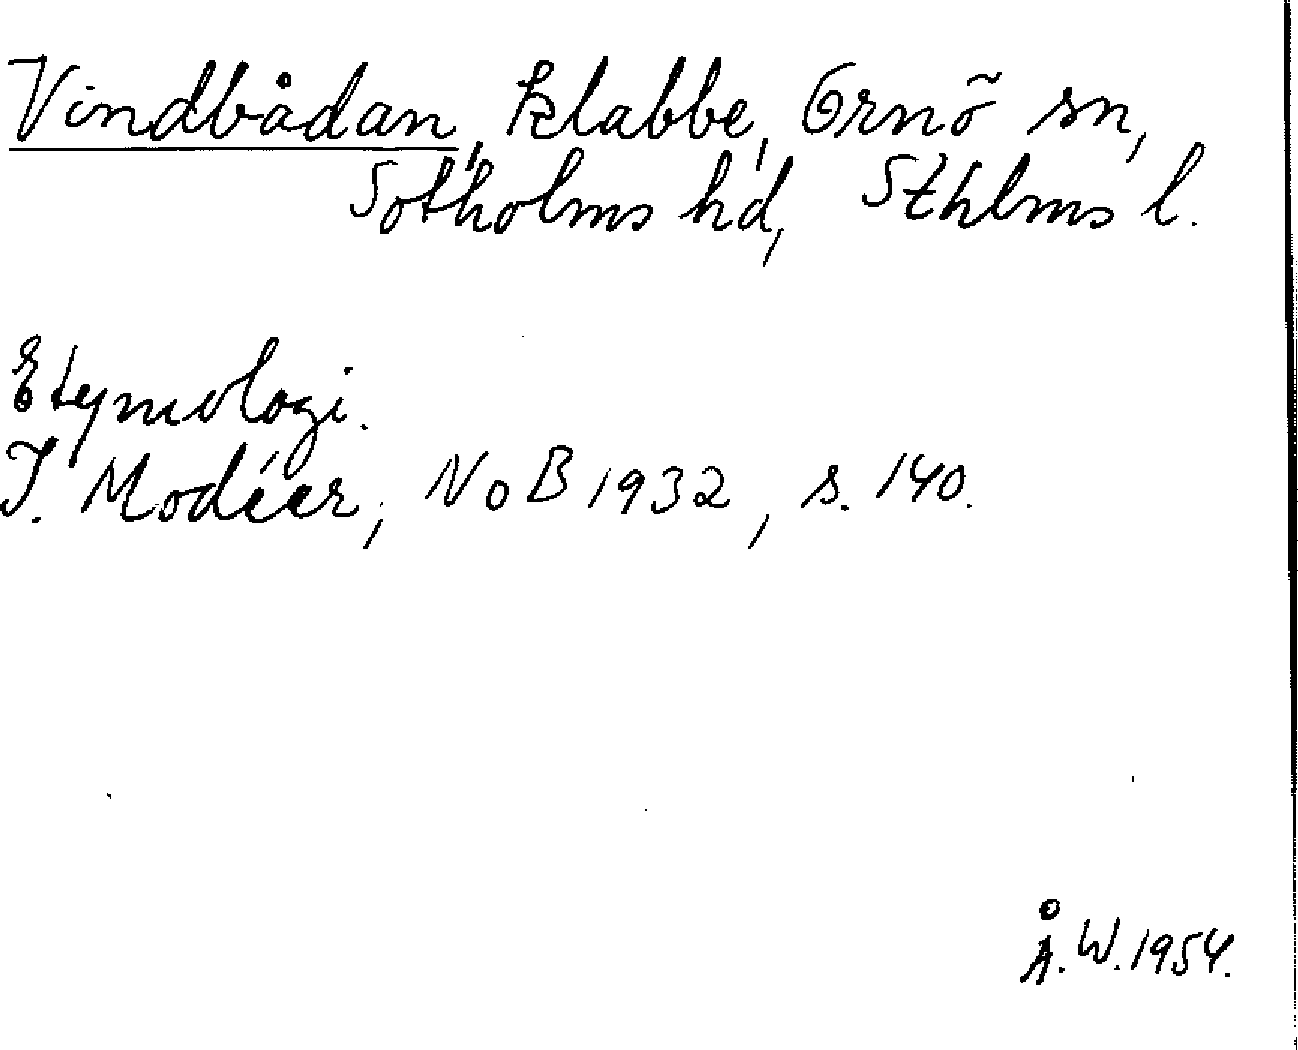 Vindbådan, klabbe, Ornö sn,
Sotholms hd, Sthlms l.
Etymologi.
I. Modéer, NoB 1932, s. 140.
Å.W.1954.